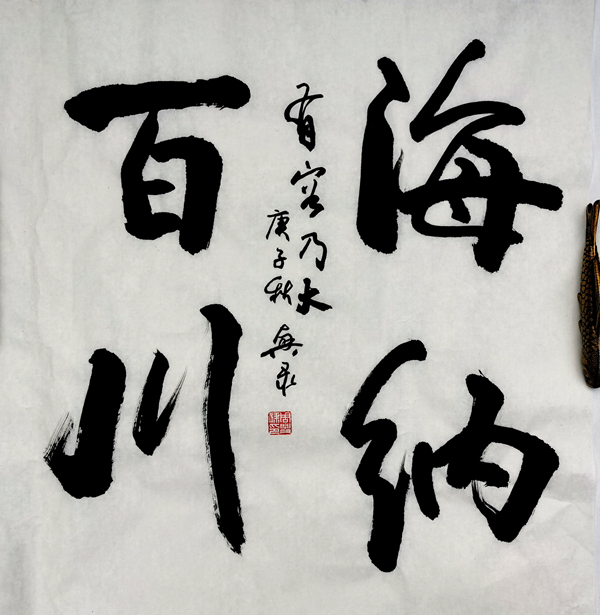 海纳
百川
有容乃大
庚子秋